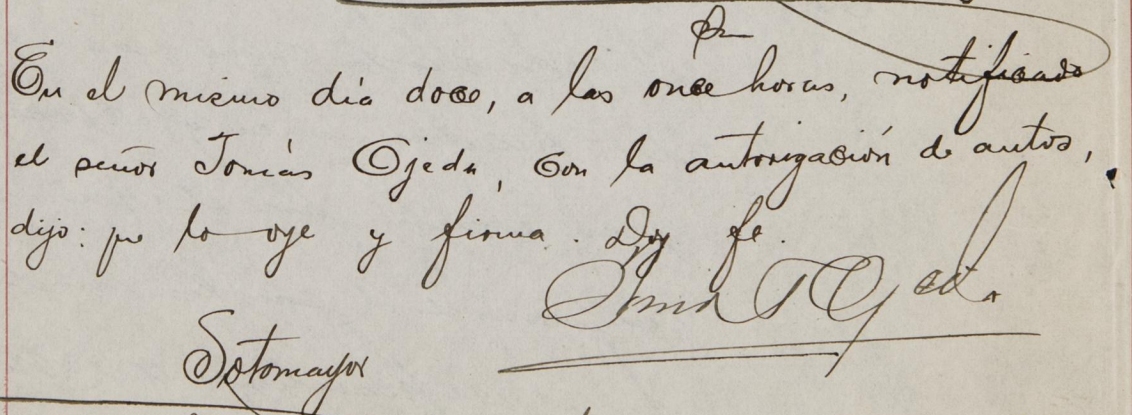 En el mismo día doce, a las once horas, notificado
el señor Tomás Ojeda, con la autorización de autos,
dijo: que lo oye y firma. Doy fe.
Tomás T Ojeda
Sotomayor